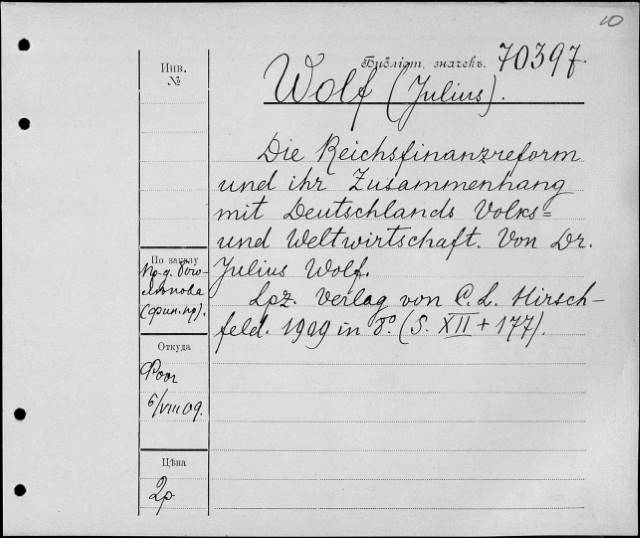 10
Библіот. значекъ. 70397.
Инв.
№
Wolf (Julius).
Die Reichsfinanzreform
und ihr Zusammenhang
mit Deutschlands Volks=
und Weltwirtschaft. Von Dr.
Julius Wolf.
Lpz. Verlag von C. L. Hirsch-
feld. 1909 in 8°. (S. XII + 177).
По заказу
(фин. пр).
Откуда
Фоог
6/VIII 09.
Цѣна
2р